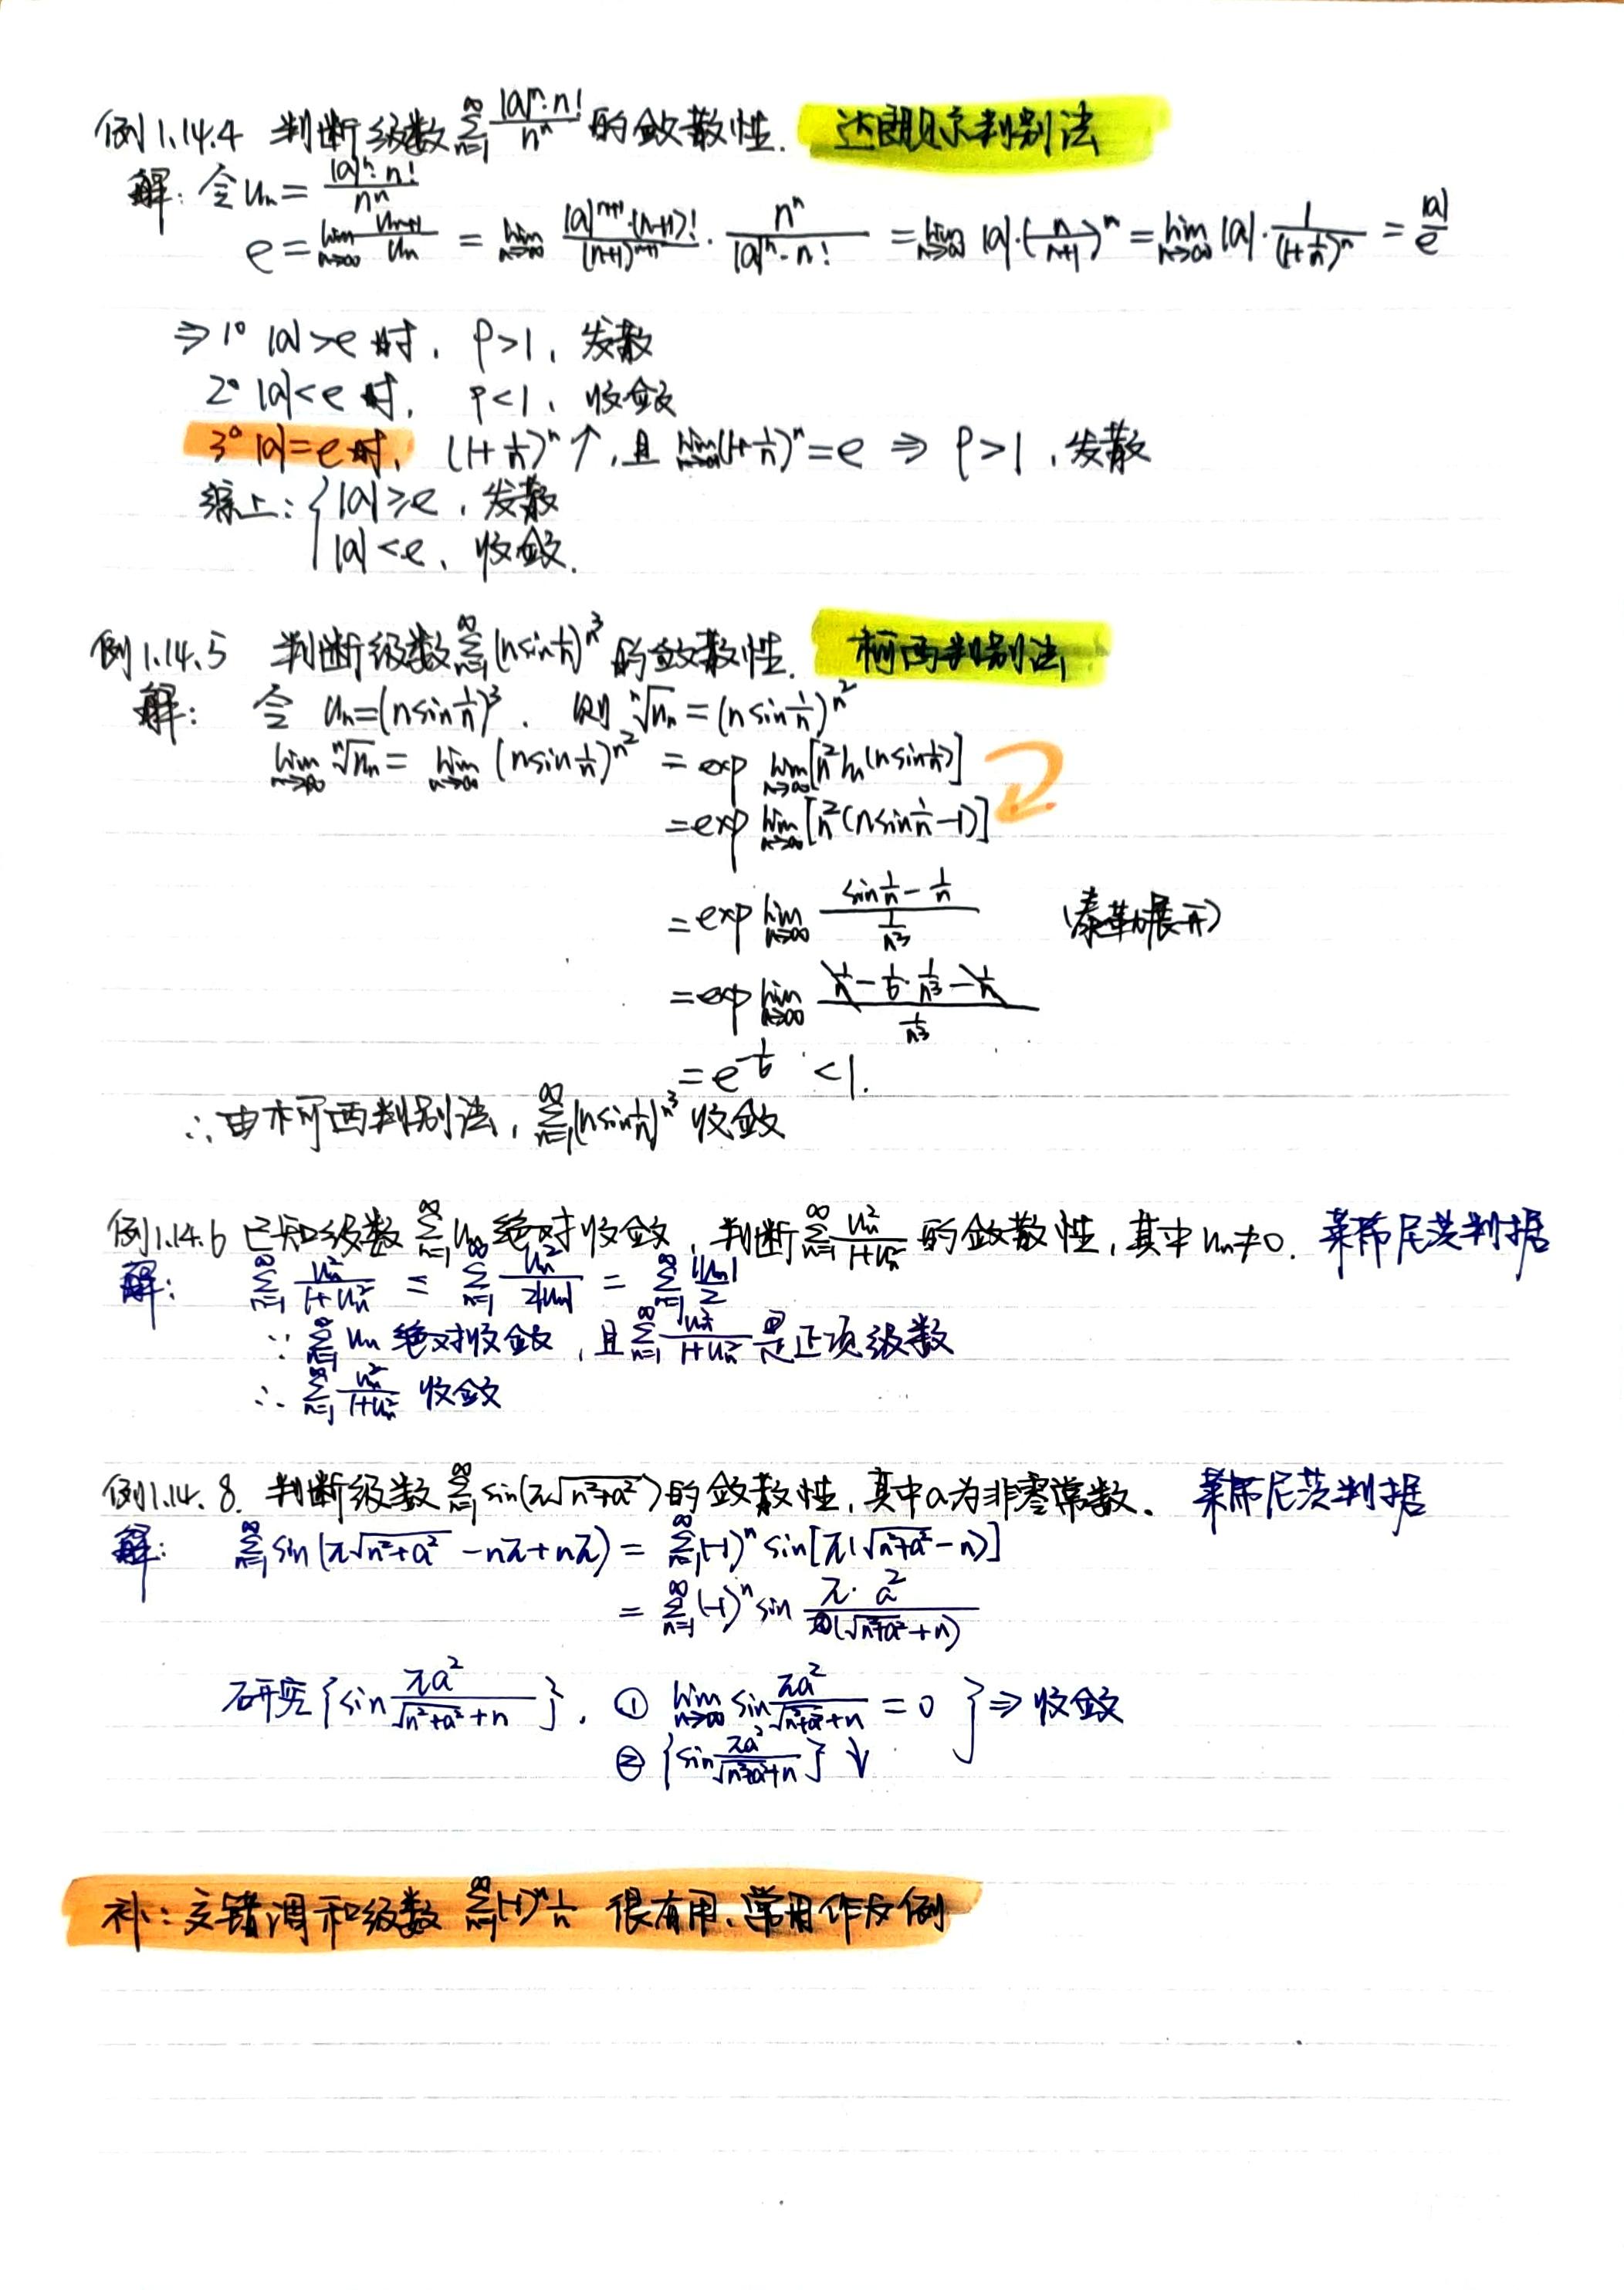 例1.14.4 判断级数 ∑_{n=1}^{∞} |a|^n·n!/n^n 的敛散性. 达朗贝尔判别法
解: 令 u_n = |a|^n·n!/n^n
ρ = lim_{n→∞} u_{n+1}/u_n = lim_{n→∞} |a|^{n+1}·(n+1)!/(n+1)^{n+1} · n^n/(|a|^n·n!) = lim_{n→∞} |a|·(n/(n+1))^n = lim_{n→∞} |a|·1/(1+1/n)^n = |a|/e
⇒ 1° |a|>e 时, ρ>1, 发散
2° |a|<e 时, ρ<1, 收敛
3° |a|=e 时, (1+1/n)^n ↑, 且 lim_{n→∞}(1+1/n)^n = e ⇒ ρ>1, 发散
综上: { |a|≥e, 发散
|a|<e, 收敛.
例1.14.5 判断级数 ∑_{n=1}^{∞} (n sin 1/n)^{n^3} 的敛散性. 柯西判别法
解: 令 u_n = (n sin 1/n)^3. 则 ⁿ√u_n = (n sin 1/n)^{n^2}
lim_{n→∞} ⁿ√u_n = lim_{n→∞} (n sin 1/n)^{n^2} = exp lim_{n→∞} [n^2 ln(n sin 1/n)]
= exp lim_{n→∞} [n^2(n sin 1/n − 1)]
= exp lim_{n→∞} (sin 1/n − 1/n)/(1/n^3) (泰勒展开)
= exp lim_{n→∞} (1/n − 1/6·1/n^3 − 1/n)/(1/n^3)
= e^{-1/6} < 1.
∴ 由柯西判别法, ∑_{n=1}^{∞} (n sin 1/n)^{n^3} 收敛
例1.14.6 已知级数 ∑_{n=1}^{∞} u_n 绝对收敛, 判断 ∑_{n=1}^{∞} u_n^2/(1+u_n^2) 的敛散性, 其中 u_n≠0. 莱布尼茨判据
解: ∑_{n=1}^{∞} u_n^2/(1+u_n^2) ≤ ∑_{n=1}^{∞} u_n^2/(2|u_n|) = ∑_{n=1}^{∞} |u_n|/2
∵ ∑_{n=1}^{∞} u_n 绝对收敛, 且 ∑_{n=1}^{∞} u_n^2/(1+u_n^2) 是正项级数
∴ ∑_{n=1}^{∞} u_n^2/(1+u_n^2) 收敛
例1.14.8. 判断级数 ∑_{n=1}^{∞} sin(π√(n^2+a^2)) 的敛散性, 其中a为非零常数. 莱布尼茨判据
解: ∑_{n=1}^{∞} sin(π√(n^2+a^2) − nπ + nπ) = ∑_{n=1}^{∞} (-1)^n sin[π(√(n^2+a^2) − n)]
= ∑_{n=1}^{∞} (-1)^n sin π·a^2/(√(n^2+a^2)+n)
研究 {sin πa^2/(√(n^2+a^2)+n)}, ① lim_{n→∞} sin πa^2/(√(n^2+a^2)+n) = 0 } ⇒ 收敛
② {sin πa^2/(√(n^2+a^2)+n)} ↓
补: 交错调和级数 ∑_{n=1}^{∞} (-1)^n 1/n 很有用、常用作反例